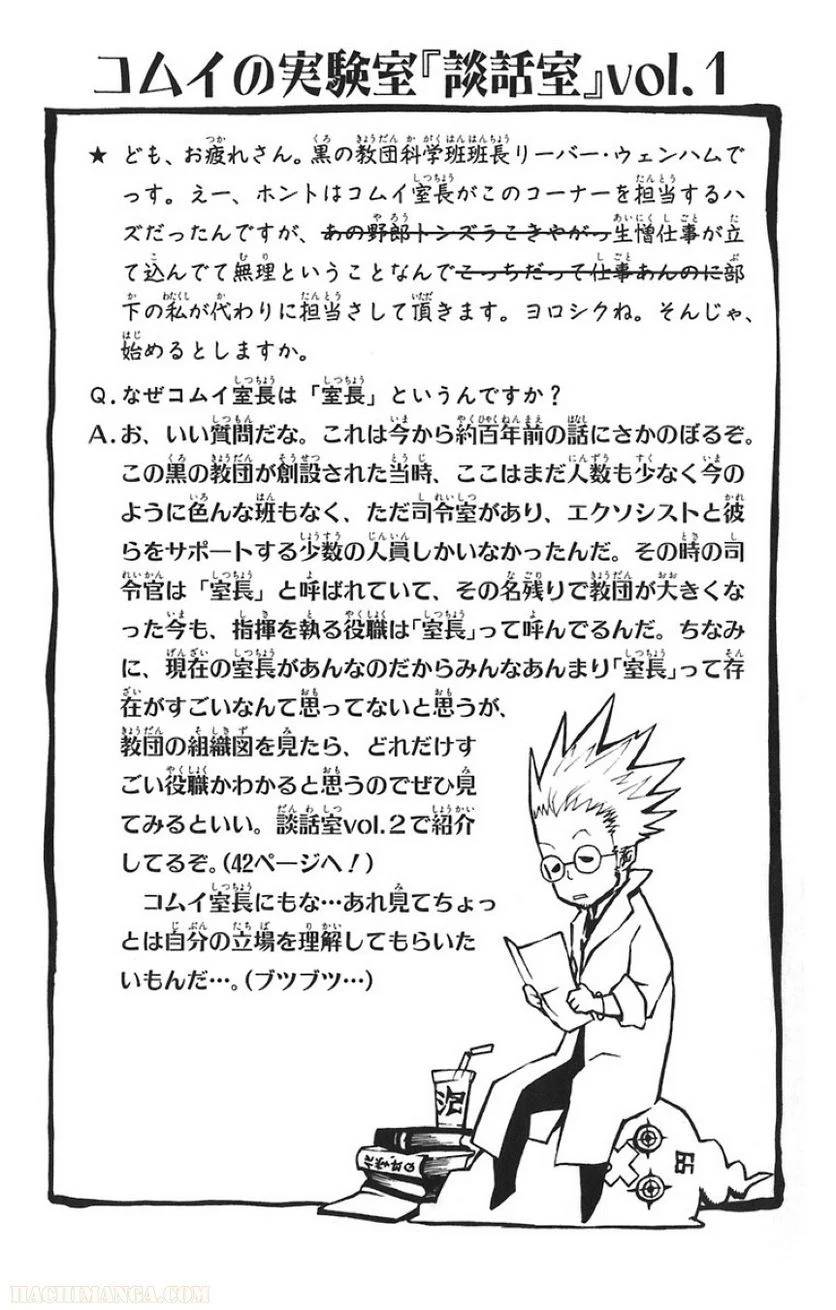 コムイの実験室『談話室』vol.1
★ ども、お疲れさん。黒の教団科学班班長リーバー・ウェンハムで
っす。えー、ホントはコムイ室長がこのコーナーを担当するハ
ズだったんですが、あの野郎トンズラこきやがっ生憎仕事が立
て込んでて無理ということなんでこっちだって仕事あんのに部
下の私が代わりに担当さして頂きます。ヨロシクね。そんじゃ、
始めるとしますか。
Q.なぜコムイ室長は「室長」というんですか?
A.お、いい質問だな。これは今から約百年前の話にさかのぼるぞ。
この黒の教団が創設された当時、ここはまだ人数も少なく今の
ように色んな班もなく、ただ司令室があり、エクソシストと彼
らをサポートする少数の人員しかいなかったんだ。その時の司
令官は「室長」と呼ばれていて、その名残りで教団が大きくな
った今も、指揮を執る役職は「室長」って呼んでるんだ。ちなみ
に、現在の室長があんなのだからみんなあんまり「室長」って存
在がすごいなんて思ってないと思うが、
教団の組織図を見たら、どれだけす
ごい役職かわかると思うのでぜひ見
てみるといい。談話室vol.2で紹介
してるぞ。(42ページへ!)
コムイ室長にもな…あれ見てちょっ
とは自分の立場を理解してもらいた
いもんだ…。(ブツブツ…)
泡
65
HACHIMANGA.COM